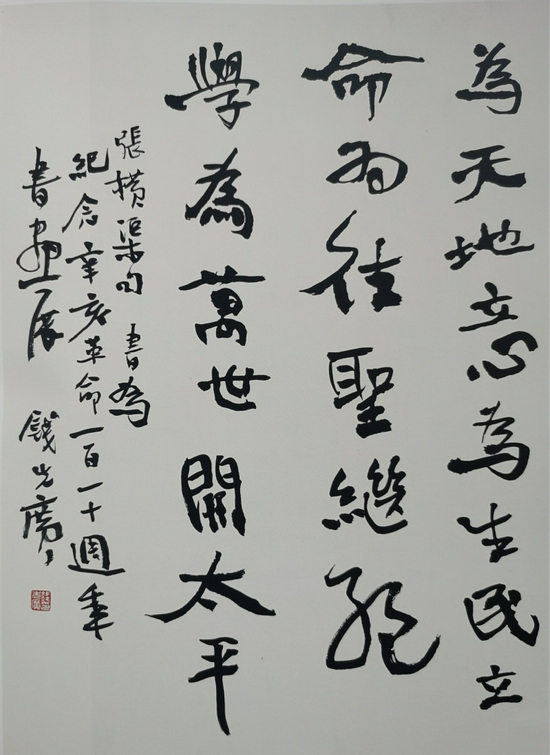 為天地立心為生民立
命為往聖繼絕
學為萬世開太平
張橫渠句 書為
紀念辛亥革命一百一十週年
書畫展 錢先廣